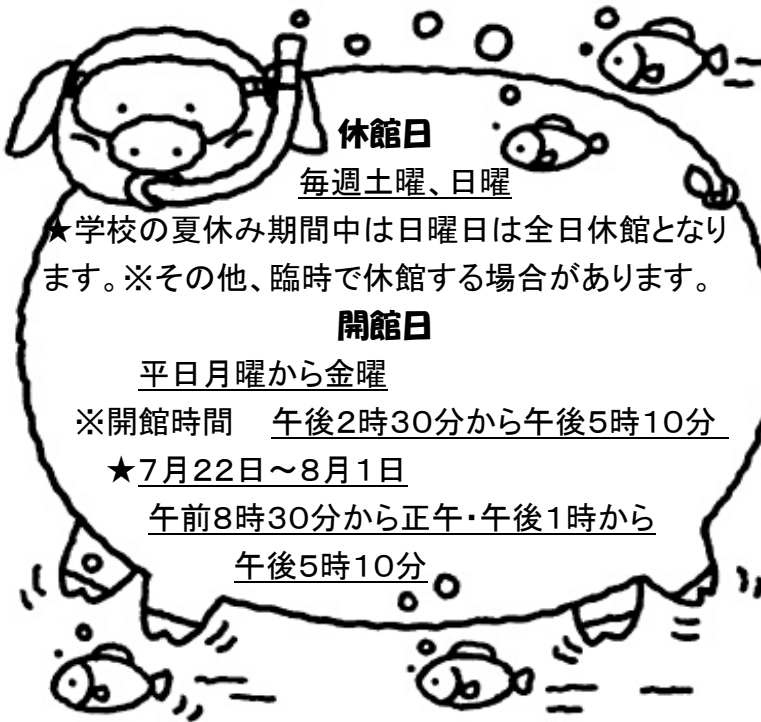 休館日
毎週土曜、日曜
★学校の夏休み期間中は日曜日は全日休館となり
ます。※その他、臨時で休館する場合があります。
開館日
平日月曜から金曜
※開館時間　午後2時30分から午後5時10分
★7月22日～8月1日
午前8時30分から正午・午後1時から
午後5時10分